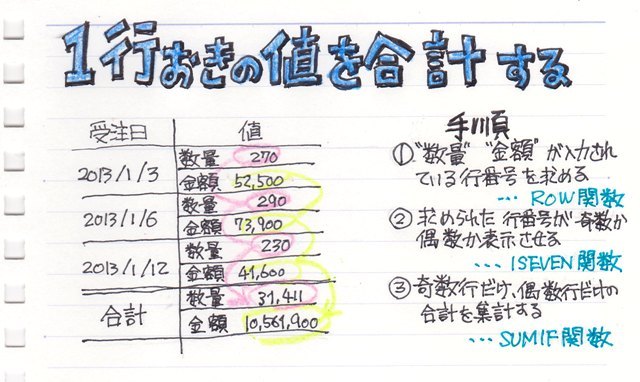 1行おきの値を合計する
受注日 値
2013/1/3 数量 270
金額 52,500
2013/1/6 数量 290
金額 73,900
2013/1/12 数量 230
金額 41,600
合計 数量 31,411
金額 10,561,900
手順
①"数量" "金額" が入力され
ている行番号を求める
… ROW関数
②求められた行番号が奇数か
偶数か表示させる
… ISEVEN関数
③奇数行だけ、偶数行だけの
合計を集計する
… SUMIF関数